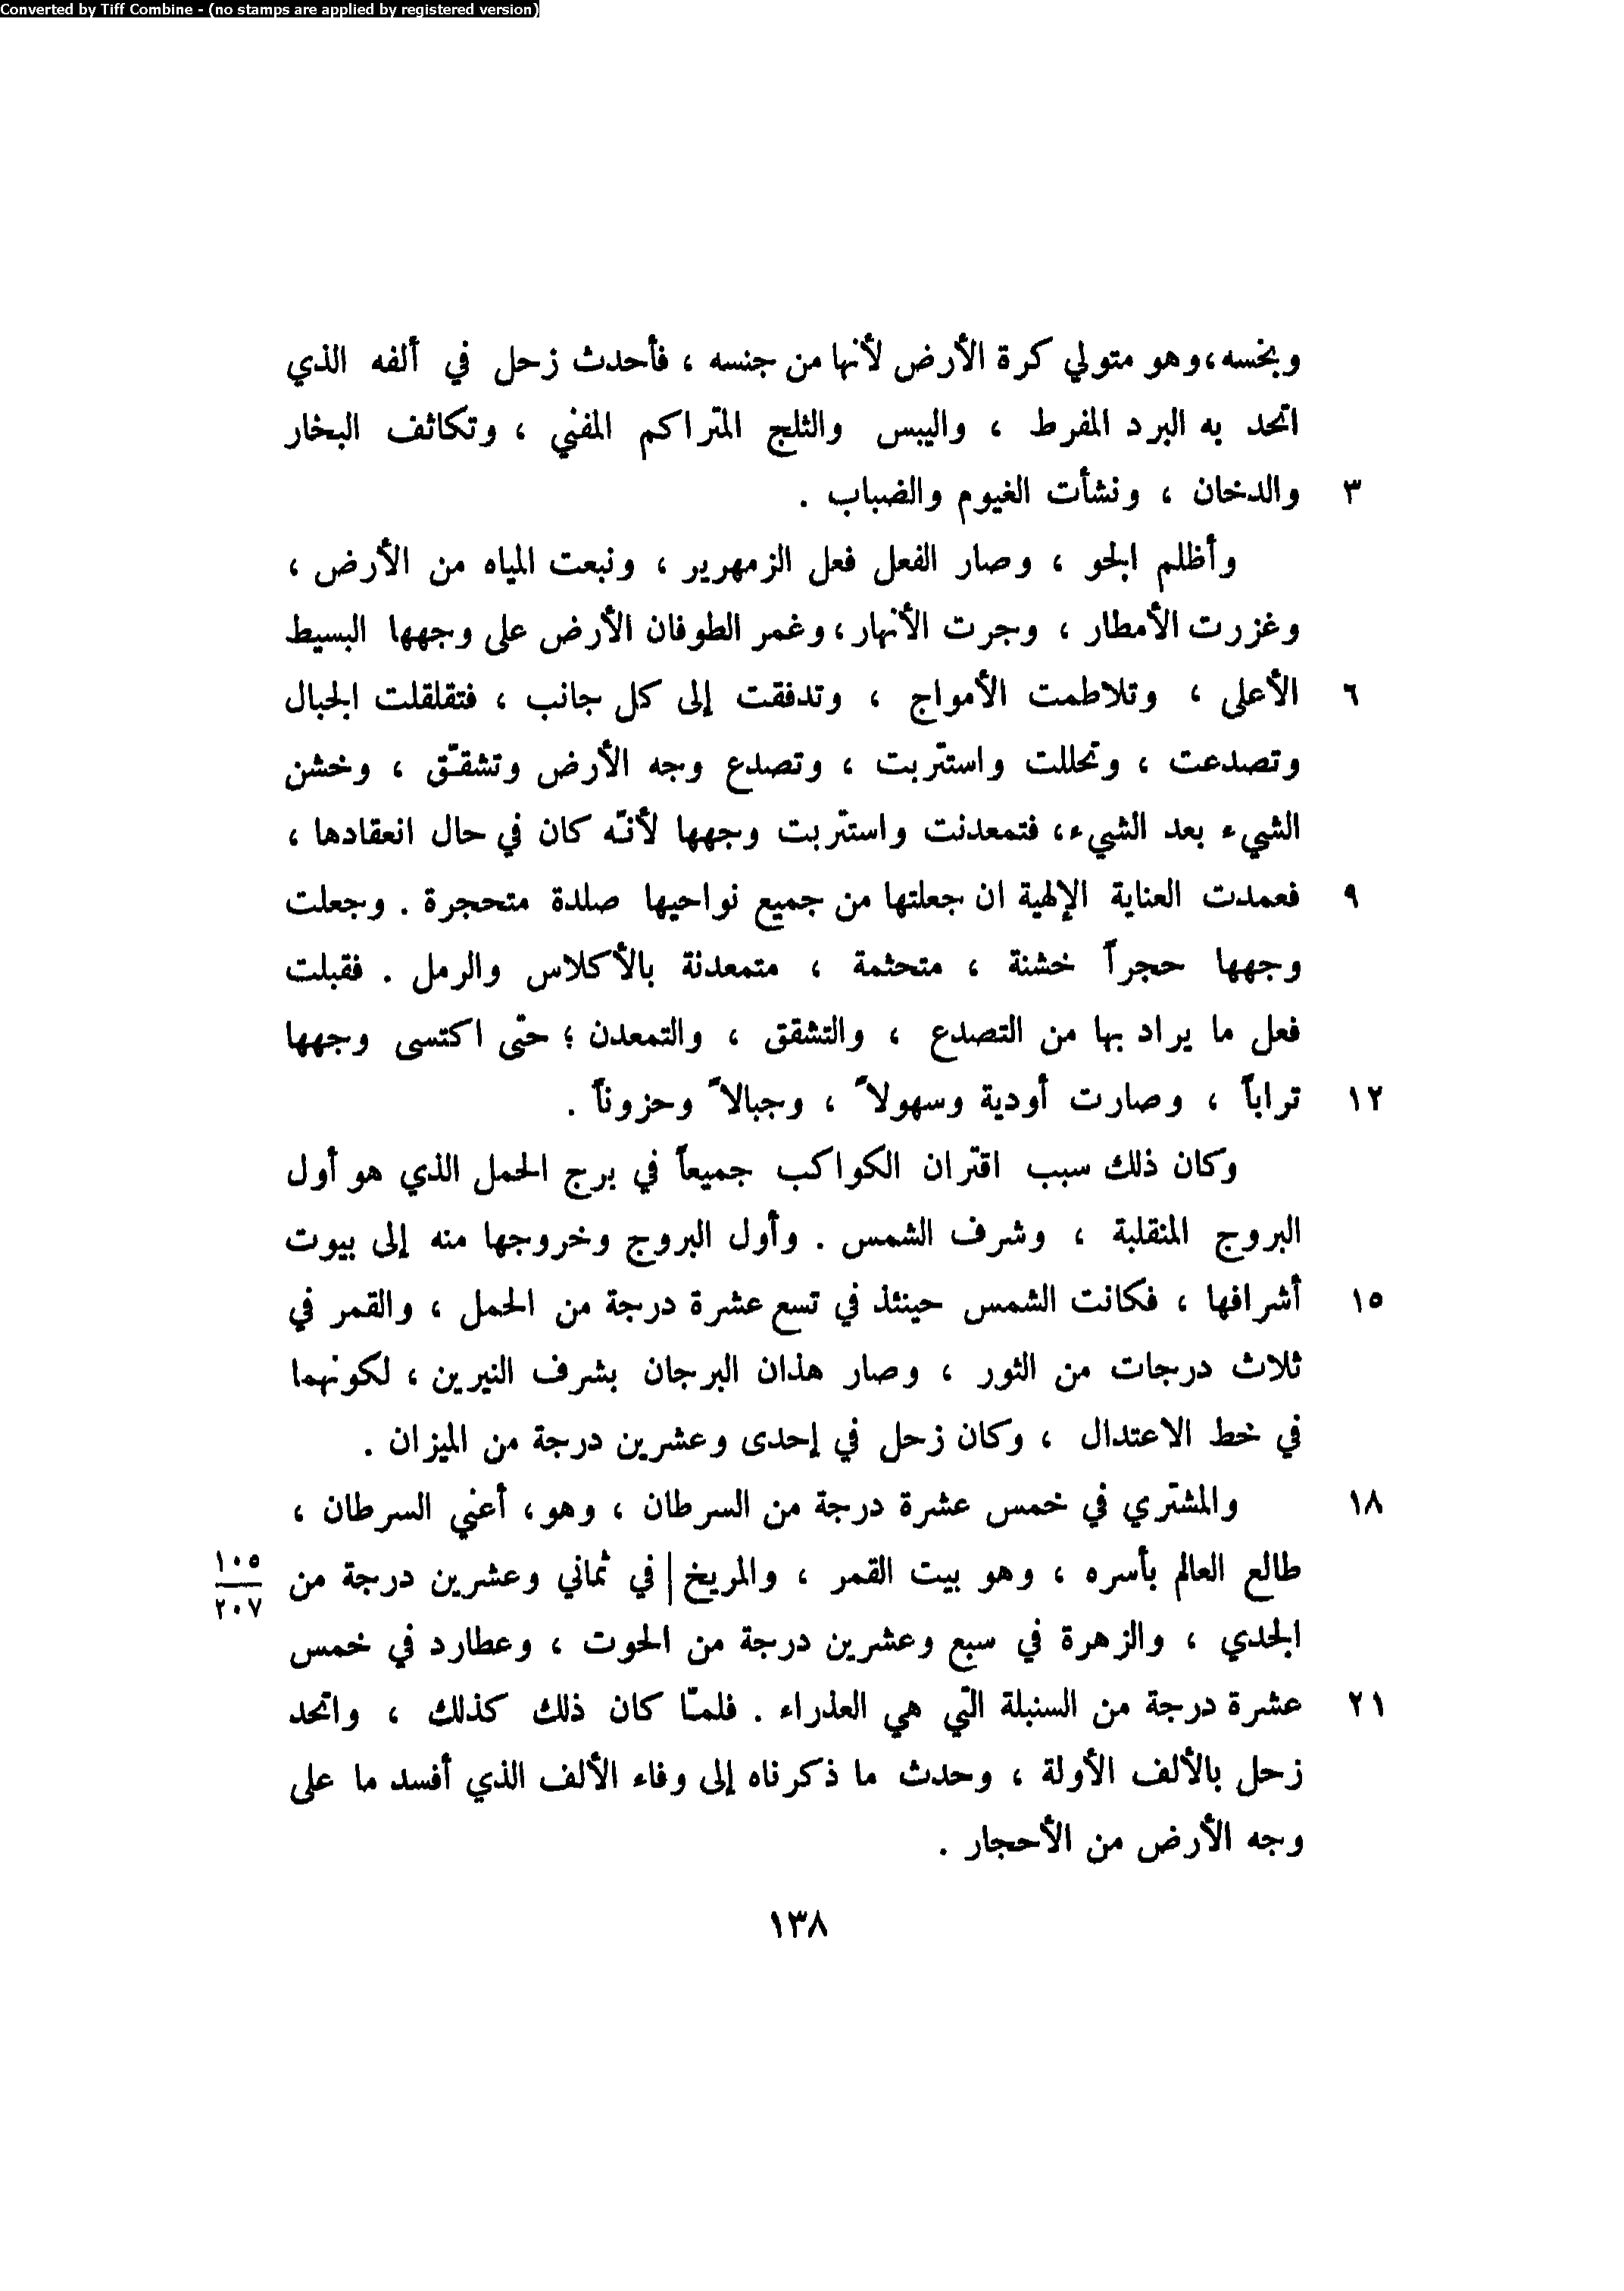 Converted by Tiff Combine - (no stamps are applied by registered version)
وبخسه، وهو متولي كرة الأرض لأنها من جنسه ، فأحدث زحل في ألفه الذي
اتحد به البرد المفرط ، واليبس والثلج المتراكم المفني ، وتكاثف البخار
٣ والدخان ، ونشأت الغيوم والضباب .
وأظلم الجو ، وصار الفعل فعل الزمهرير ، ونبعت المياه من الأرض ،
وغزرت الأمطار ، وجرت الأنهار ، وغمر الطوفان الأرض على وجهها البسيط
٦ الأعلى ، وتلاطمت الأمواج ، وتدفقت إلى كل جانب ، فتقلقلت الجبال
وتصدعت ، وتحللت واستتربت ، وتصدع وجه الأرض وتشقّق ، وخشن
الشيء بعد الشيء ، فتمعدنت واستتربت وجهها لأنّه كان في حال انعقادها ،
٩ فعمدت العناية الإلهية ان جعلتها من جميع نواحيها صلدة متحجرة . وجعلت
وجهها حجراً خشنة ، متحثمة ، متمعدنة بالأكلاس والرمل . فقبلت
فعل ما يراد بها من التصدع ، والتشقق ، والتمعدن ؛ حتّى اكتسى وجهها
١٢ تراباً ، وصارت أودية وسهولاً ، وجبالاً وحزوناً .
وكان ذلك سبب اقتران الكواكب جميعاً في برج الحمل الذي هو أول
البروج المنقلبة ، وشرف الشمس . وأول البروج وخروجها منه إلى بيوت
١٥ أشرافها ، فكانت الشمس حينئذ في تسع عشرة درجة من الحمل ، والقمر في
ثلاث درجات من الثور ، وصار هذان البرجان بشرف النيرين ، لكونهما
في خط الاعتدال ، وكان زحل في إحدى وعشرين درجة من الميزان .
١٨ والمشتري في خمس عشرة درجة من السرطان ، وهو ، أعني السرطان ،
طالع العالم بأسره ، وهو بيت القمر ، والمريخ | في ثماني وعشرين درجة من
١٠٥
٢٠٧
الجدي ، والزهرة في سبع وعشرين درجة من الحوت ، وعطارد في خمس
٢١ عشرة درجة من السنبلة التي هي العذراء . فلمّا كان ذلك كذلك ، واتحد
زحل بالألف الأولة ، وحدث ما ذكرناه إلى وفاء الألف الذي أفسد ما على
وجه الأرض من الأحجار .
١٣٨